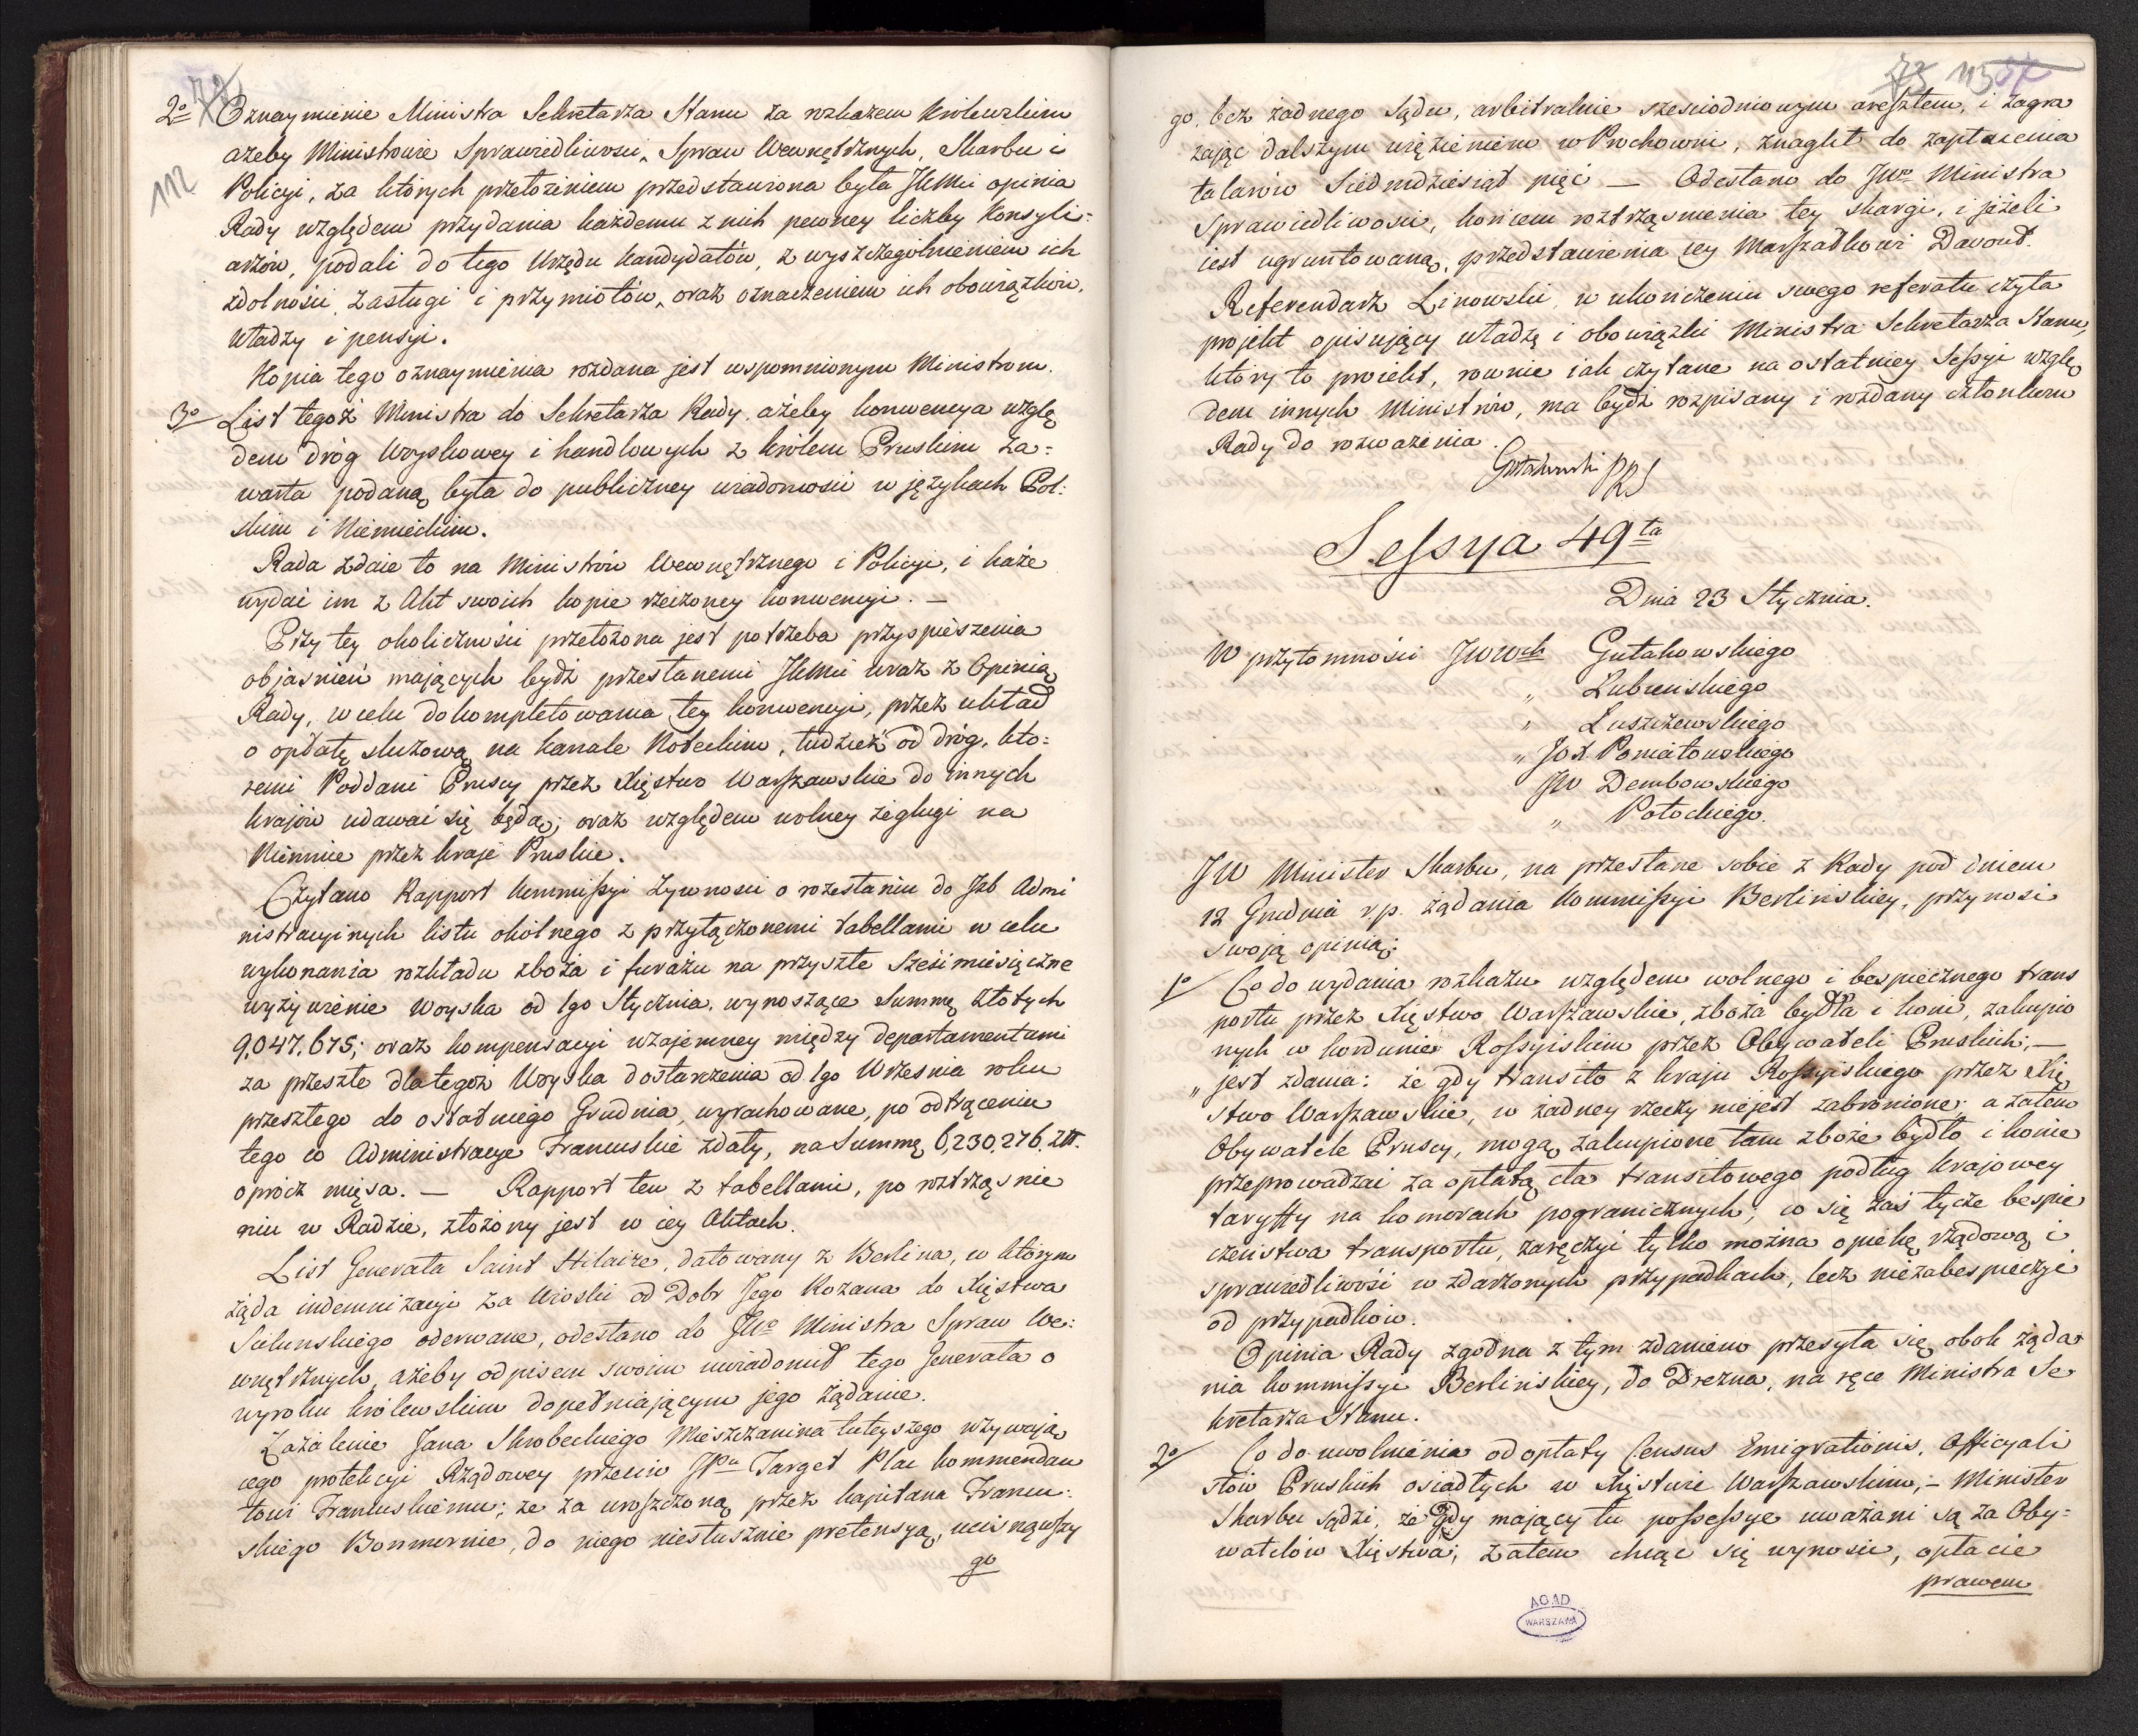 72
112
2o Oznaymienie Ministra Sekretarza Stanu za rozkazem Królewskim
ażeby Ministrowie Sprawiedliwości, Spraw Wewnętrznych, Skarbu i
Policyi, za których przełożeniem przedstawiona była JKMci opinia
Rady względem przydania każdemu z nich pewney liczby Konsyli=
arzów, podali do tego Urzędu kandydatów, z wyszczególnieniem ich
zdolności, zasługi i przymiotów, oraz oznaczeniem ich obowiązków,
władzy i pensyi.
Kopia tego oznaymienia rozdana jest wspomnionym Ministrom.
3o List tegoż Ministra do Sekretarza Rady, ażeby konwencya wzglę
dem dróg Woyskowey i handlowych z królem Pruskim za=
warta podaną była do publiczney wiadomości w językach Pol:
skim i Niemieckim.
Rada zdaie to na Ministrów Wewnętrznego i Policyi, i każe
wydać im z Akt swoich kopie rzeczoney konwencyi. —
Przy tey okoliczności przełożona jest potrzeba przyspieszenia
objaśnień mających bydź przesłanemi JKMci wraz z Opinią
Rady, w celu dokompletowania tey konwencyi, przez układ
o opłatę śluzową na kanale Noteckim, tudzież od dróg, któ=
remi Poddani Pruscy przez Xięstwo Warszawskie do innych
krajów udawać się będą; oraz względem wolney żeglugi na
Niemnie przez kraje Pruskie.
Czytano Rapport Kommissyi Żywności o rozesłaniu do Izb Admi
nistracyinych listu okólnego z przyłączonemi tabellami w celu
wykonania rozkładu zboża i furażu na przyszłe sześciomiesięczne
wyżywienie Woyska od 1go Stycznia, wynoszące Summę złotych
9,047,675; oraz kompensacyi wzajemney między departamentami
za przeszłe dla tegoż Woyska dostarczenia od 1go Września roku
przeszłego do ostatniego Grudnia, wyrachowane, po odtrąceniu
tego co Administracye Francuskie zdały, na Summę 6,230,276 Złł.
oprócz mięsa. — Rapport ten z tabellami, po roztrząśnie
niu w Radzie, złożony jest w iey Aktach.
List Generała Saint Hilaire, datowany z Berlina, w którym
żąda indemnizacyi za wioski od Dobr Jego Kozana do Xięstwa
oderwane, odesłano do JWo Ministra Spraw We:
wnętrznych, ażeby odpisem swoim uwiadomił tego Generała o
wyroku królewskim dopełniającym jego żądanie.
Zażalenie Jana Skrobeckiego Mieszczanina tuteyszego wzywają
cego protekcyi Rządowey przeciw JPu Target Plac kommendan
towi Francuskiemu; że za uroszczoną przez kapitana Francu:
skiego Bonmornie, do niego niesłusznie pretensyą, ucisnąwszy
go
73 113
go, bez żadnego sądu, arbitralnie sześciodniowym aresztem, i zagra
żając dalszym więzieniem w Prochowni, znaglił do zapłacenia
talarów siedmdziesiąt pięć — Odesłano do JWo Ministra
Sprawiedliwości, końcem roztrząśnienia tey skargi, i jeżeli
iest ugruntowaną, przedstawienia iey Marszałkowi Davout.
Referendarz Linowski w ukończeniu swego referatu czyta
projekt opisujący władzę i obowiązki Ministra Sekretarza Stanu,
który to proiekt, równie iak czytane na ostatniey Sessyi wzglę
dem innych Ministrów, ma bydź rozpisany i rozdany członkom
Rady do rozważenia.
Gutakowski PRS
Sessya 49ta
Dnia 23 Stycznia.
W przytomności JWWch Gutakowskiego
„ Łubieńskiego
„ Łuszczewskiego
„ JOX. Poniatowskiego
JW Dembowskiego
„ Potockiego.
JW Minister Skarbu, na przesłane sobie z Rady pod dniem
18 Grudnia r.p. żądania Kommissyi Berlińskiey, przynosi
swoją opinią:
1o Co do wydania rozkazu względem wolnego i bespiecznego trans
portu przez Xięstwo Warszawskie, zboża bydła i koni, zakupio
nych w kordonie Rossyiskim przez Obywateli Pruskich; —
„ jest zdania: że gdy transito z kraju Rossyiskiego przez Xię
stwo Warszawskie, w żadney rzeczy niejest zabronione; a zatem
Obywatele Pruscy, mogą zakupione tam zboże bydło i konie
przeprowadzać za opłatą cła transitowego podług krajowey
taryffy na komorach pogranicznych; co się zaś tycze bespie
czeństwa transportu, zaręczyć tylko można opiekę rządową i
sprawiedliwość w zdarzonych przypadkach, lecz niezabespieczyć
od przypadków.
Opinia Rady zgodna z tym zdaniem przesyła się obok żąda
nia kommissyi Berlińskiey, do Drezna, na ręce Ministra Se
kretarza Stanu.
2o Co do uwolnienia od opłaty Census Emigrationis, Officyali
stów Pruskich osiadłych w Xięstwie Warszawskim, — Minister
Skarbu sądzi, że gdy mający tu possessye uważani są za Oby=
watelów Xięstwa; zatem chcąc się wynosić, opłacie
prawem
AGAD
WARSZAWA